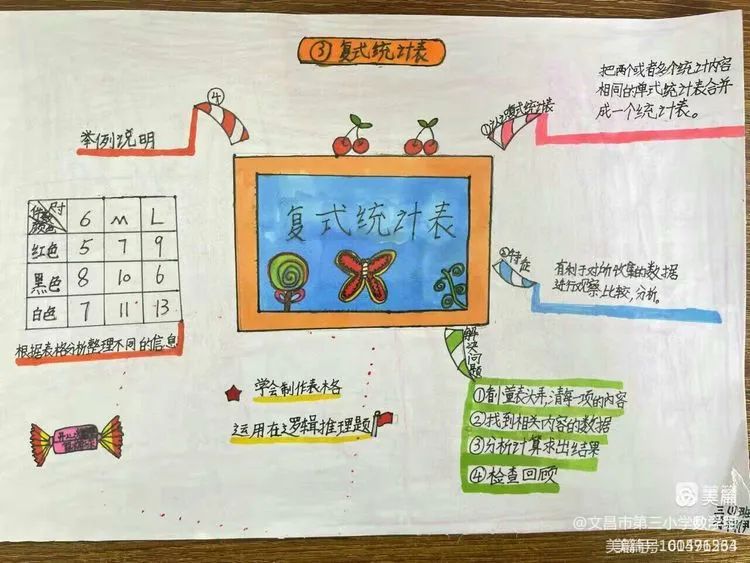 ③复式统计表
把两个或者多个统计内容
相同的单式统计表合并
成一个统计表。
①认识复式统计表
④
举例说明
复式统计表
尺寸
件数
颜色
6 M L
红色 5 7 9
黑色 8 10 6
白色 7 11 13
根据表格分析整理不同的信息
②特征
有利于对所收集的数据
进行观察,比较,分析。
解决问题
学会制作表格
运用在逻辑推理题
弄清每一项的内容
②找到相关内容的数据
③分析计算求出结果
④检查回顾
美篇
三(1)班
@文昌市第三小学数学科
美篇号